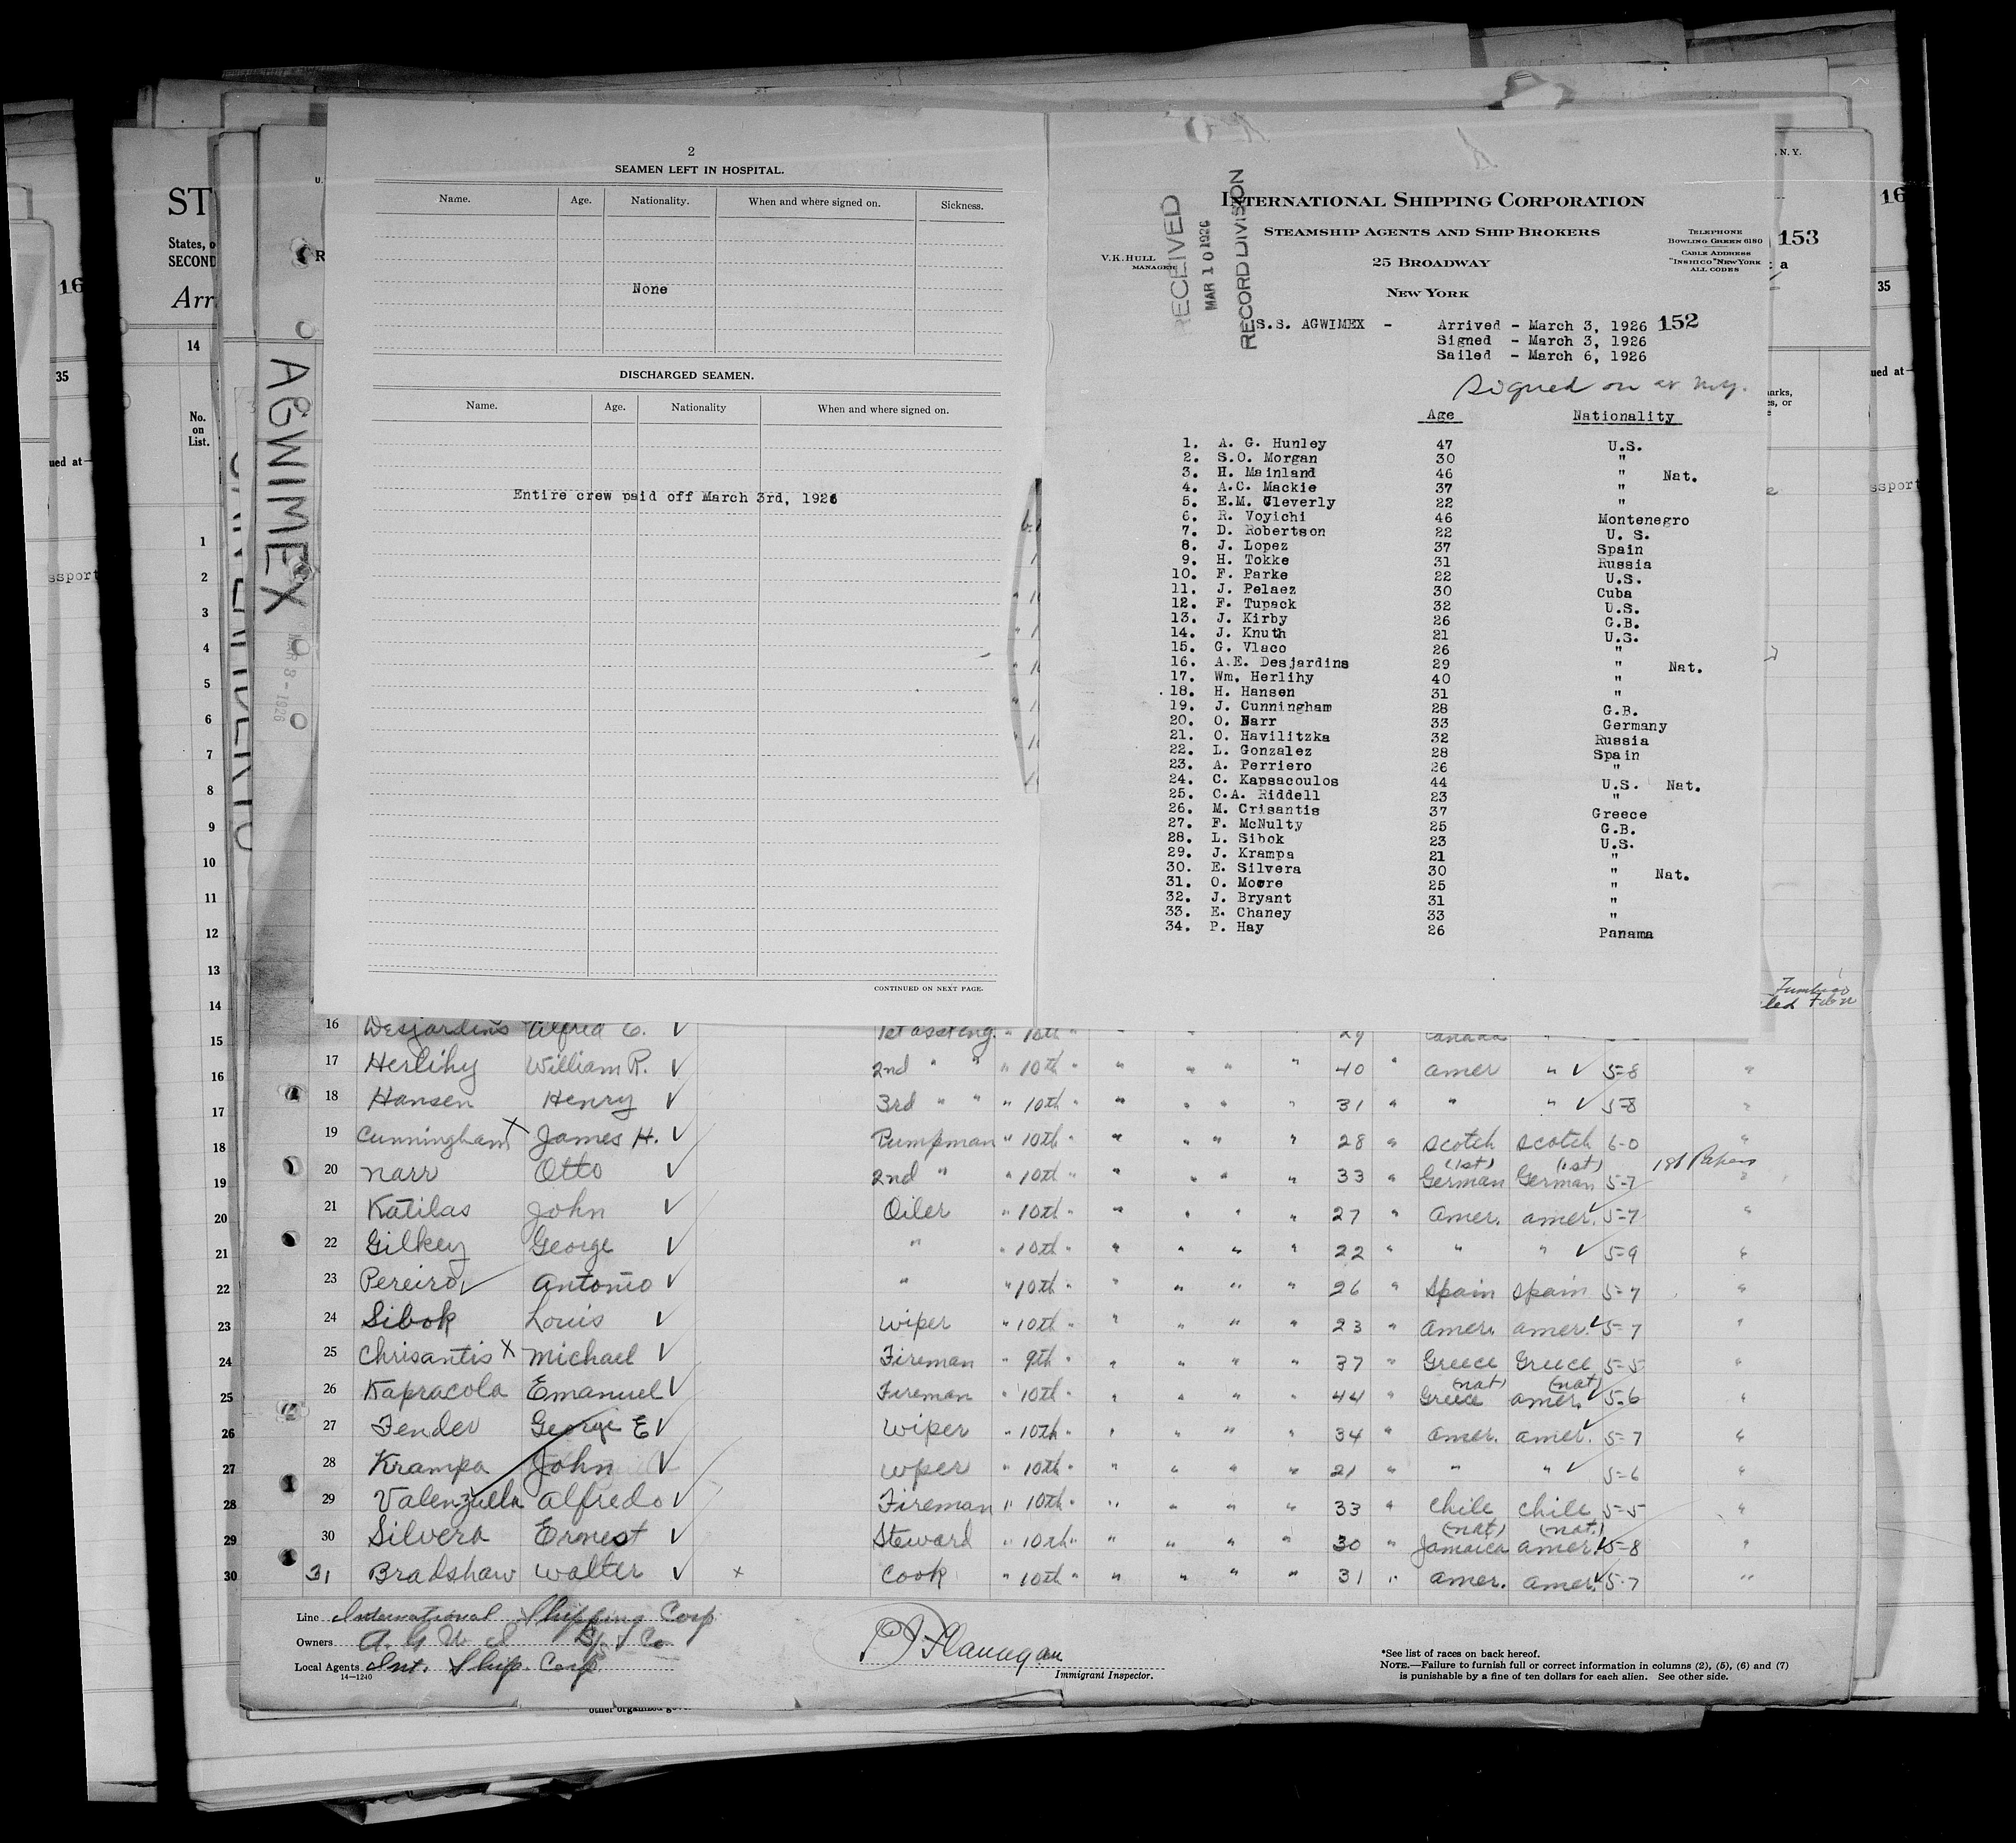 2
SEAMEN LEFT IN HOSPITAL.
Name. Age. Nationality. When and where signed on. Sickness.
None
DISCHARGED SEAMEN.
Name. Age. Nationality When and where signed on.
Entire crew paid off March 3rd, 1926
CONTINUED ON NEXT PAGE.
RECEIVED
MAR 10 1926
RECORD DIVISION
INTERNATIONAL SHIPPING CORPORATION
STEAMSHIP AGENTS AND SHIP BROKERS
V.K. HULL
MANAGER
25 BROADWAY
NEW YORK
TELEPHONE
BOWLING GREEN 6180
CABLE ADDRESS
"INSHICO" NEW YORK
ALL CODES
S.S. AGWIMEX - Arrived - March 3, 1926 152
Signed - March 3, 1926
Sailed - March 6, 1926
Signed on at N.Y.
Age Nationality
1. A. G. Hunley 47 U.S.
2. S.O. Morgan 30 "
3. H. Mainland 46 " Nat.
4. A.C. Mackie 37 "
5. E.M. Cleverly 22 "
6. R. Voyichi 46 Montenegro
7. D. Robertson 22 U. S.
8. J. Lopez 37 Spain
9. H. Tokke 31 Russia
10. F. Parke 22 U.S.
11. J. Pelaez 30 Cuba
12. F. Tupack 32 U.S.
13. J. Kirby 26 G.B.
14. J. Knuth 21 U.S.
15. G. Vlaco 26 "
16. A.E. Desjardins 29 " Nat.
17. Wm. Herlihy 40 "
18. H. Hansen 31 "
19. J. Cunningham 28 G.B.
20. O. Narr 33 Germany
21. O. Havilitzka 32 Russia
22. L. Gonzalez 28 Spain
23. A. Perriero 26 "
24. C. Kapsacoulos 44 U.S. Nat.
25. C.A. Riddell 23 "
26. M. Crisantis 37 Greece
27. F. McNulty 25 G.B.
28. L. Sibok 23 U.S.
29. J. Krampa 21 "
30. E. Silvera 30 " Nat.
31. O. Moore 25 "
32. J. Bryant 31 "
33. E. Chaney 33 "
34. P. Hay 26 Panama
AGWIMEX
MAR 8 - 1926
16 Desjardins Alfred E. 1st asst eng. " 10th " 29 Canada
17 Herlihy William R. 2nd " " " 10th " " " " " 40 " amer " 5-8 "
18 Hansen Henry 3rd " " " 10th " " " " " 31 " " " 5-8 "
19 Cunningham X James H. Pumpman " 10th " " " " " 28 " Scotch Scotch 6-0 "
20 Narr Otto 2nd " " 10th " " " " " 33 " German (1st) German (1st) 5-7 1st Papers "
21 Katilas John Oiler " 10th " " " " " 27 " Amer. amer. 5-7 "
22 Gilkey George " " 10th " " " " " 22 " " " 5-9 "
23 Pereiro Antonio " " 10th " " " " " 26 " Spain Spain 5-7 "
24 Sibok Louis Wiper " 10th " " " " " 23 " amer. amer. 5-7 "
25 Chrisantis X Michael Fireman " 9th " " " " " 37 " Greece Greece 5-5 "
26 Kapracola Emanuel Fireman " 10th " " " " " 44 " Greece (nat) amer. (nat) 5-6 "
27 Fender George E Wiper " 10th " " " " " 34 " amer. amer. 5-7 "
28 Krampa John Wiper " 10th " " " " " 21 " " " 5-6 "
29 Valenzuella Alfredo Fireman " 10th " " " " " 33 " Chile Chile 5-5 "
30 Silvera Ernest Steward " 10th " " " " " 30 " Jamaica (nat) amer. (nat.) 5-8 "
31 Bradshaw Walter X Cook " 10th " " " " " 31 " amer. amer. 5-7 "
Line International Shipping Corp
Owners A. G. W. I. S/S Co
Local Agents Int. Ship. Corp
14-1240
P J Flanagan
Immigrant Inspector.
*See list of races on back hereof.
NOTE.—Failure to furnish full or correct information in columns (2), (5), (6) and (7)
is punishable by a fine of ten dollars for each alien. See other side.
ST
States, o
SECOND
Arr
14
No.
on
List.
1
2
3
4
5
6
7
8
9
10
11
12
13
14
15
16
17
18
19
20
21
22
23
24
25
26
27
28
29
30
16
35
ued at
ssport
, N.Y.
153
16
35
ued at
ssport